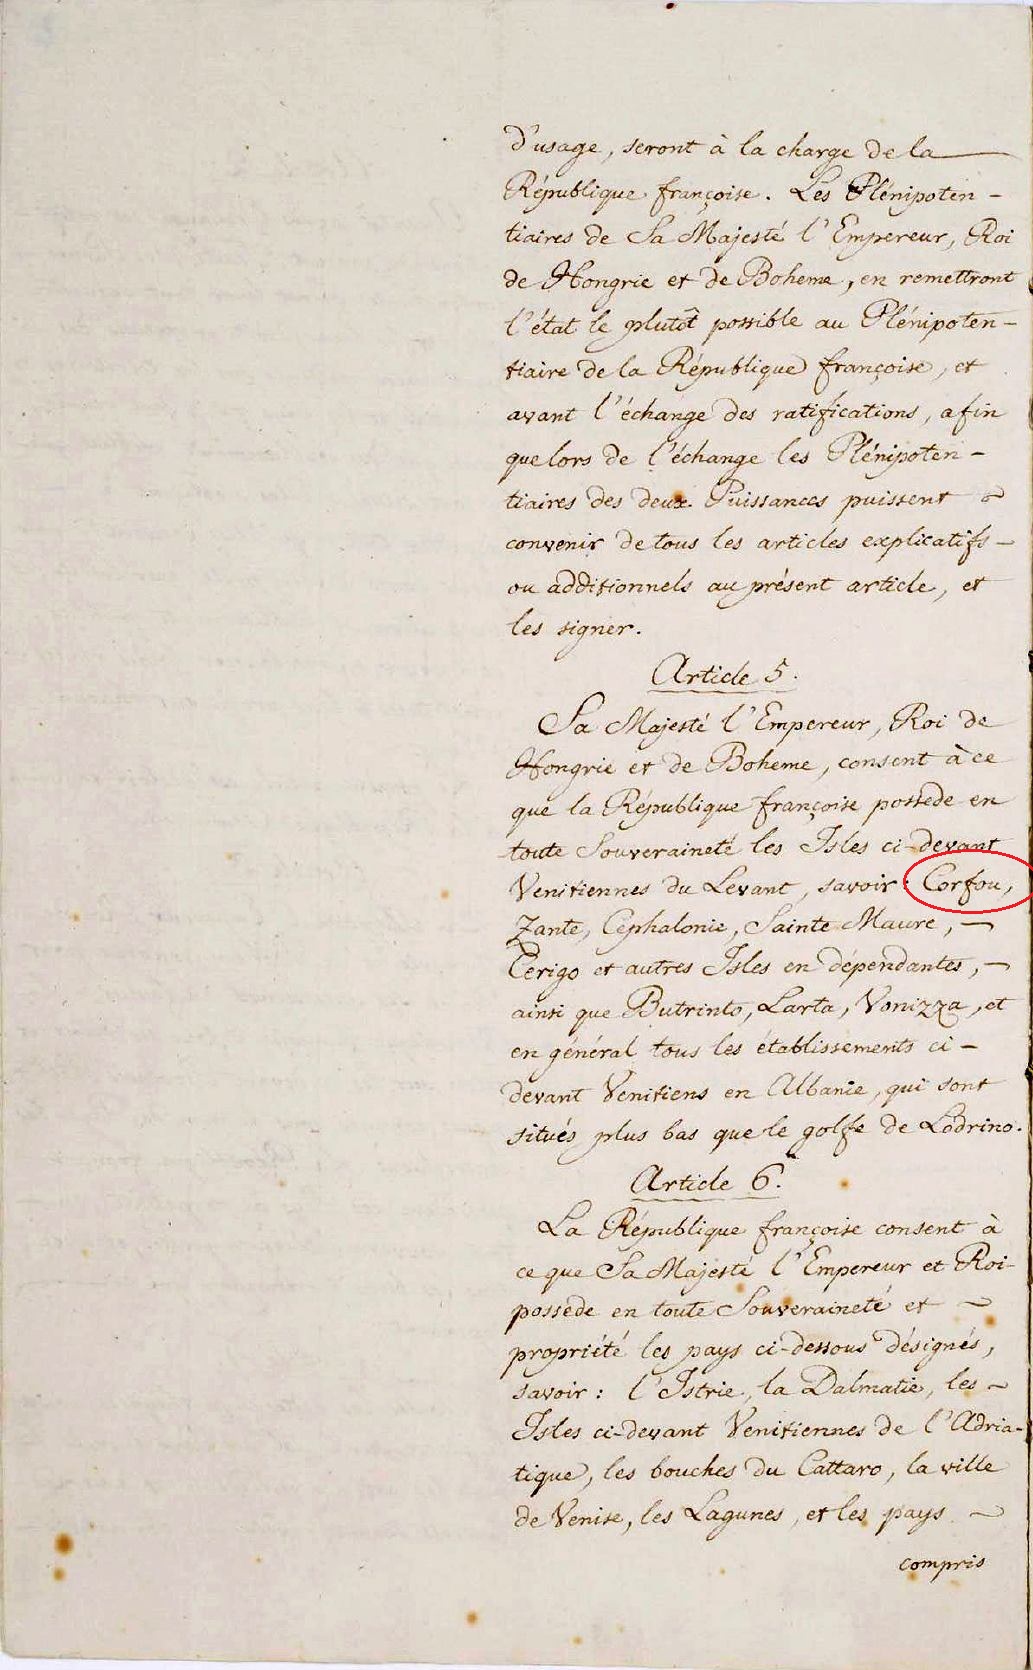 d'usage, seront à la charge de la
République françoise. Les Plénipoten-
tiaires de Sa Majesté l'Empereur, Roi
de Hongrie et de Boheme, en remettront
l'état le plutôt possible au Plénipoten-
tiaire de la République françoise, et
avant l'échange des ratifications, afin
que lors de l'échange les Plénipoten-
tiaires des deux Puissances puissent
convenir de tous les articles explicatifs
ou additionnels au présent article, et
les signer.
Article 5.
Sa Majesté l'Empereur, Roi de
Hongrie et de Boheme, consent à ce
que la République françoise possede en
toute Souveraineté les Isles ci-devant
Venitiennes du Levant, savoir: Corfou,
Zante, Céphalonie, Sainte Maure,
Cerigo et autres Isles en dépendantes,
ainsi que Butrinto, Larta, Vonizza, et
en général tous les établissements ci-
devant Venitiens en Albanie, qui sont
situés plus bas que le golfe de Lodrino.
Article 6.
La République françoise consent à
ce que Sa Majesté l'Empereur et Roi
possede en toute Souveraineté et
propriété les pays ci-dessous désignés,
savoir: l'Istrie, la Dalmatie, les
Isles ci-devant Venitiennes de l'Adria-
tique, les bouches du Cattaro, la ville
de Venise, les Lagunes, et les pays
compris